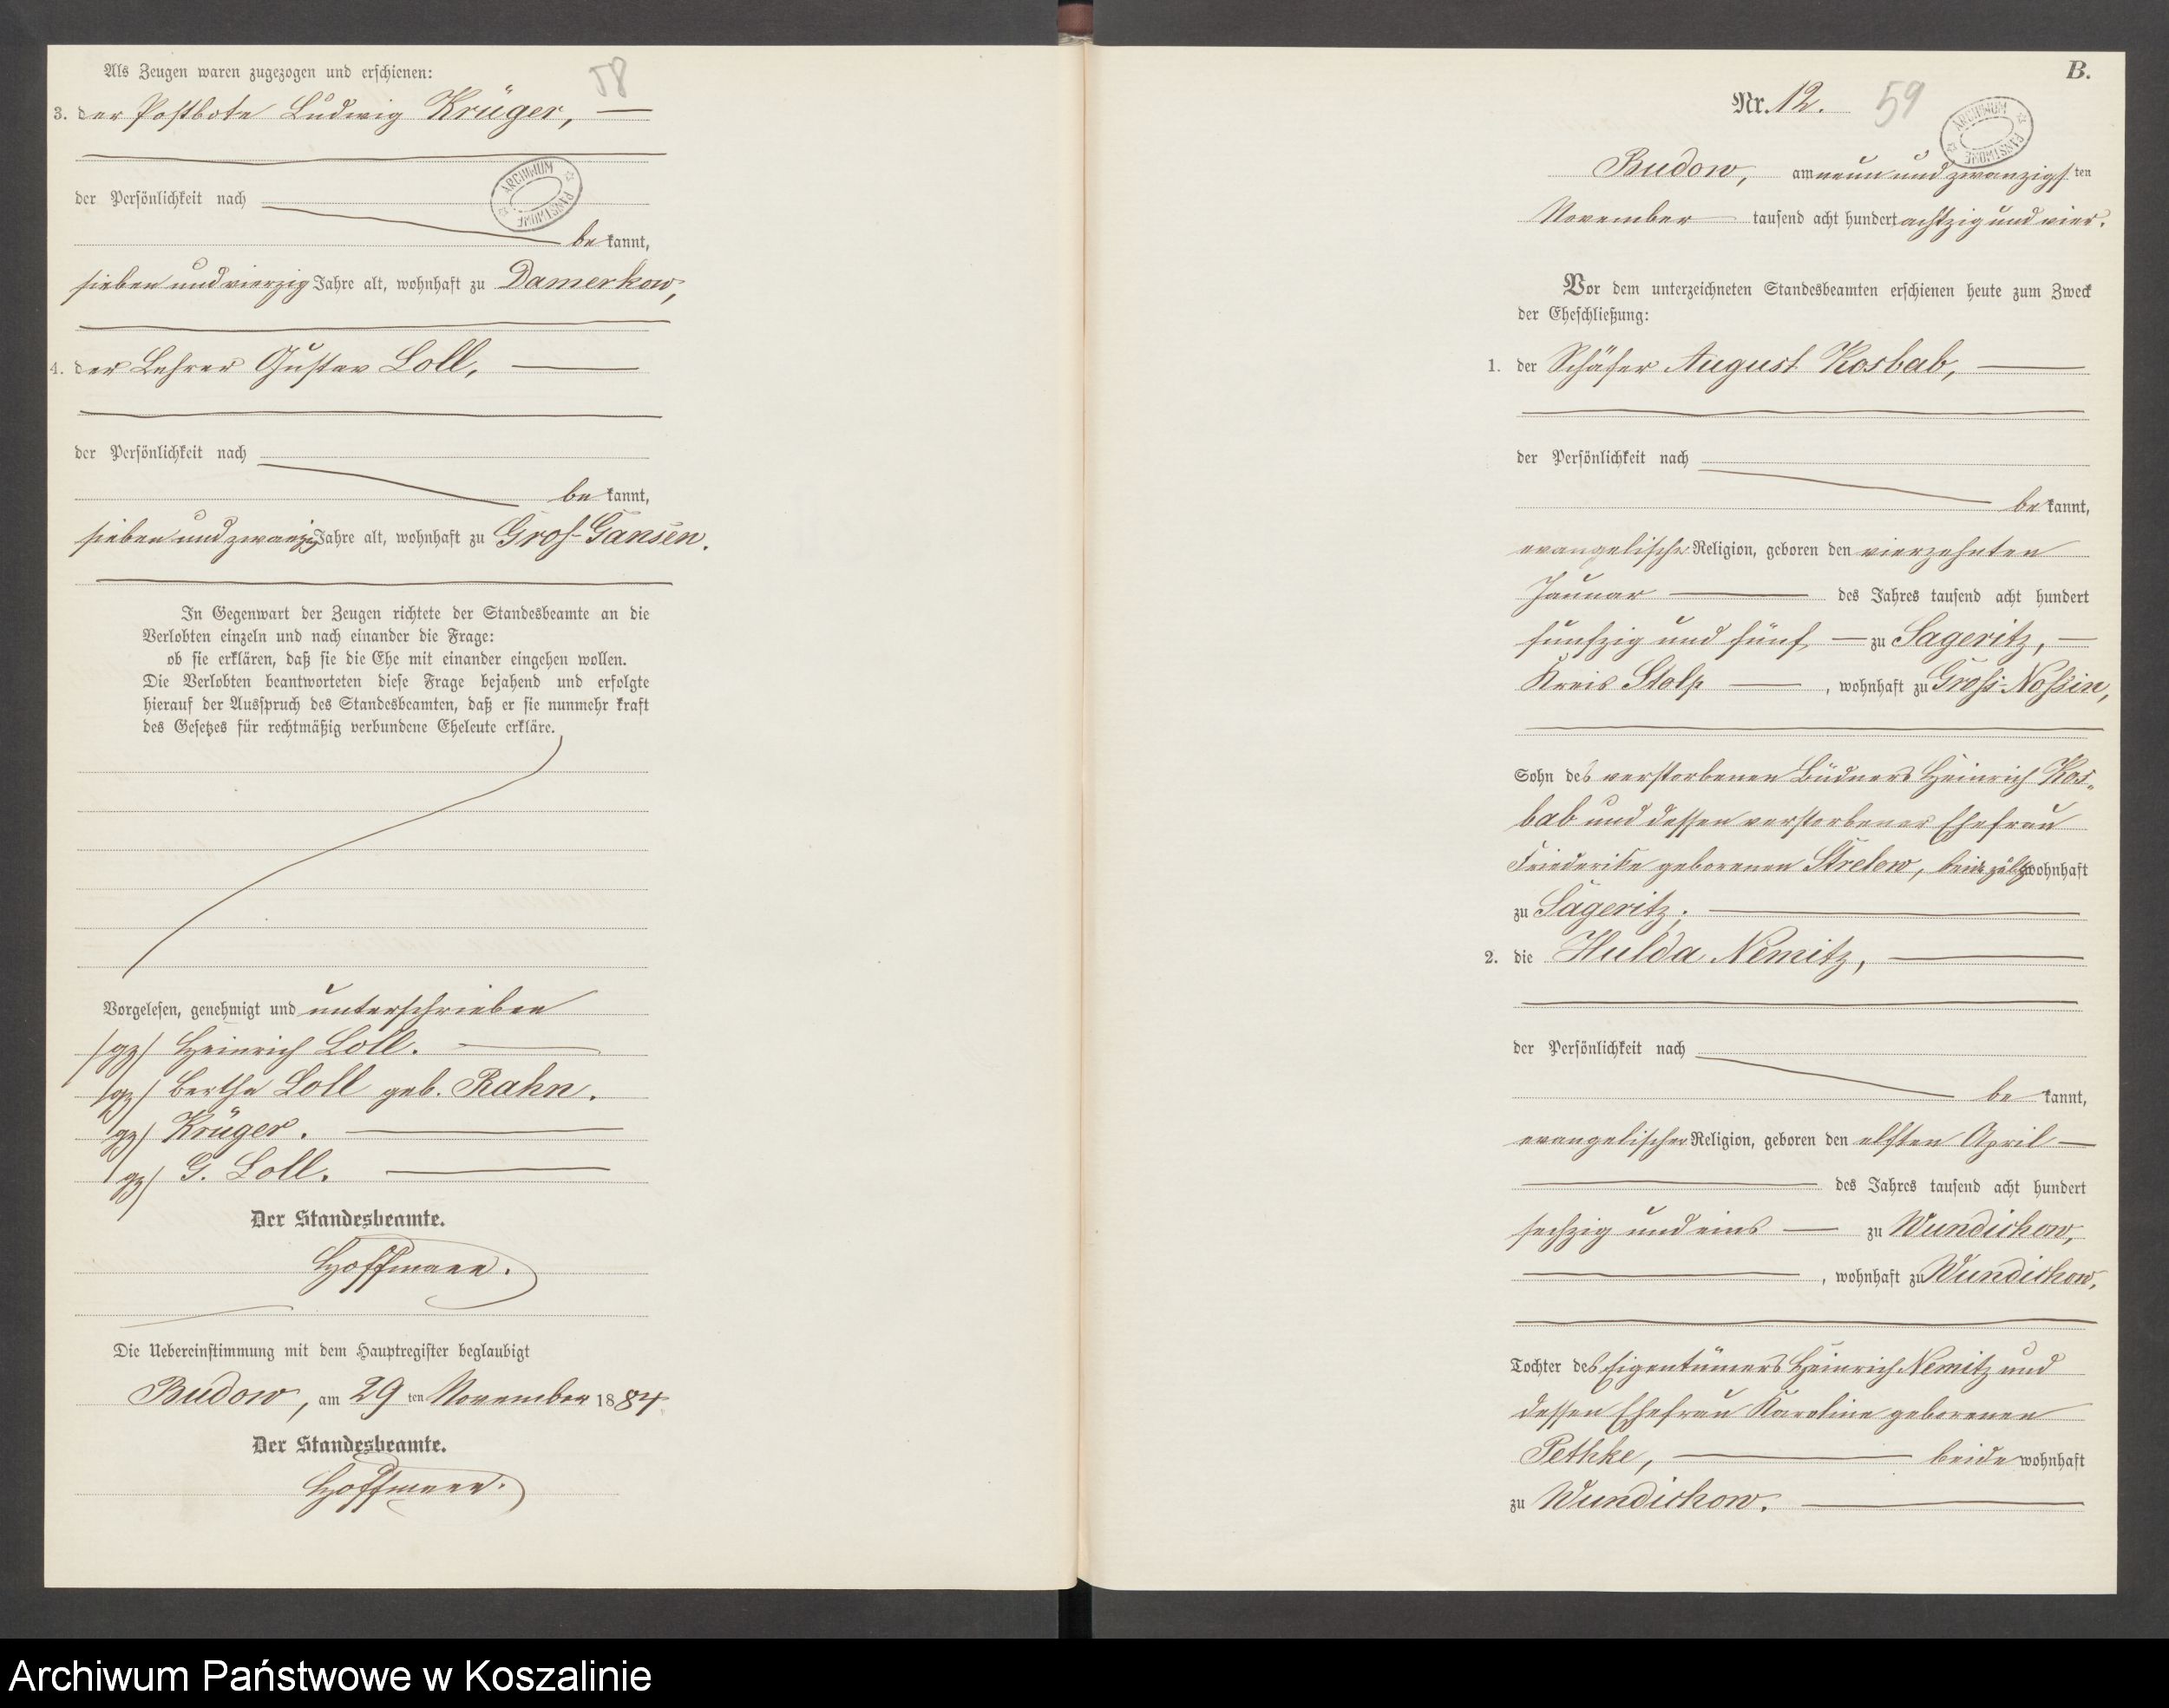 58
Als Zeugen waren zugezogen und erschienen:
3. der Postbote Ludwig Krüger,
der Persönlichkeit nach
ARCHIWUM PAŃSTWOWE
be kannt,
sieben und vierzig Jahre alt, wohnhaft zu Damerkow,
4. der Lehrer Gustav Loll,
der Persönlichkeit nach
be kannt,
sieben und zwanzig Jahre alt, wohnhaft zu Groß-Gansen.
In Gegenwart der Zeugen richtete der Standesbeamte an die
Verlobten einzeln und nach einander die Frage:
ob sie erklären, daß sie die Ehe mit einander eingehen wollen.
Die Verlobten beantworteten diese Frage bejahend und erfolgte
hierauf der Ausspruch des Standesbeamten, daß er sie nunmehr kraft
des Gesetzes für rechtmäßig verbundene Eheleute erkläre.
Vorgelesen, genehmigt und unterschrieben
(gz) Heinrich Loll.
(gz) Bertha Loll geb. Rahn.
(gz) Krüger.
(gz) G. Loll.
Der Standesbeamte.
Hoffmann.
Die Uebereinstimmung mit dem Hauptregister beglaubigt
Budow, am 29 ten November 1884
Der Standesbeamte.
Hoffmann.
B.
Nr. 12. 59
ARCHIWUM PAŃSTWOWE
Budow, am neun und zwanzigsten
November tausend acht hundert achtzig und vier.
Vor dem unterzeichneten Standesbeamten erschienen heute zum Zweck
der Eheschließung:
1. der Schäfer August Kosbab,
der Persönlichkeit nach
be kannt,
evangelischer Religion, geboren den vierzehnten
Januar des Jahres tausend acht hundert
fünfzig und fünf zu Sageritz,
Kreis Stolp, wohnhaft zu Groß-Nossin,
Sohn des verstorbenen Büdners Heinrich Kos-
bab und dessen verstorbener Ehefrau
Friederike geborenen Strelow, beide wohnhaft
zu Sageritz;
2. die Hulda Nemitz,
der Persönlichkeit nach
be kannt,
evangelischer Religion, geboren den elften April
des Jahres tausend acht hundert
sechzig und eins zu Wundichow,
, wohnhaft zu Wundichow,
Tochter des Eigentümers Heinrich Nemitz und
dessen Ehefrau Karoline geborenen
Pethke, beide wohnhaft
zu Wundichow.
Archiwum Państwowe w Koszalinie